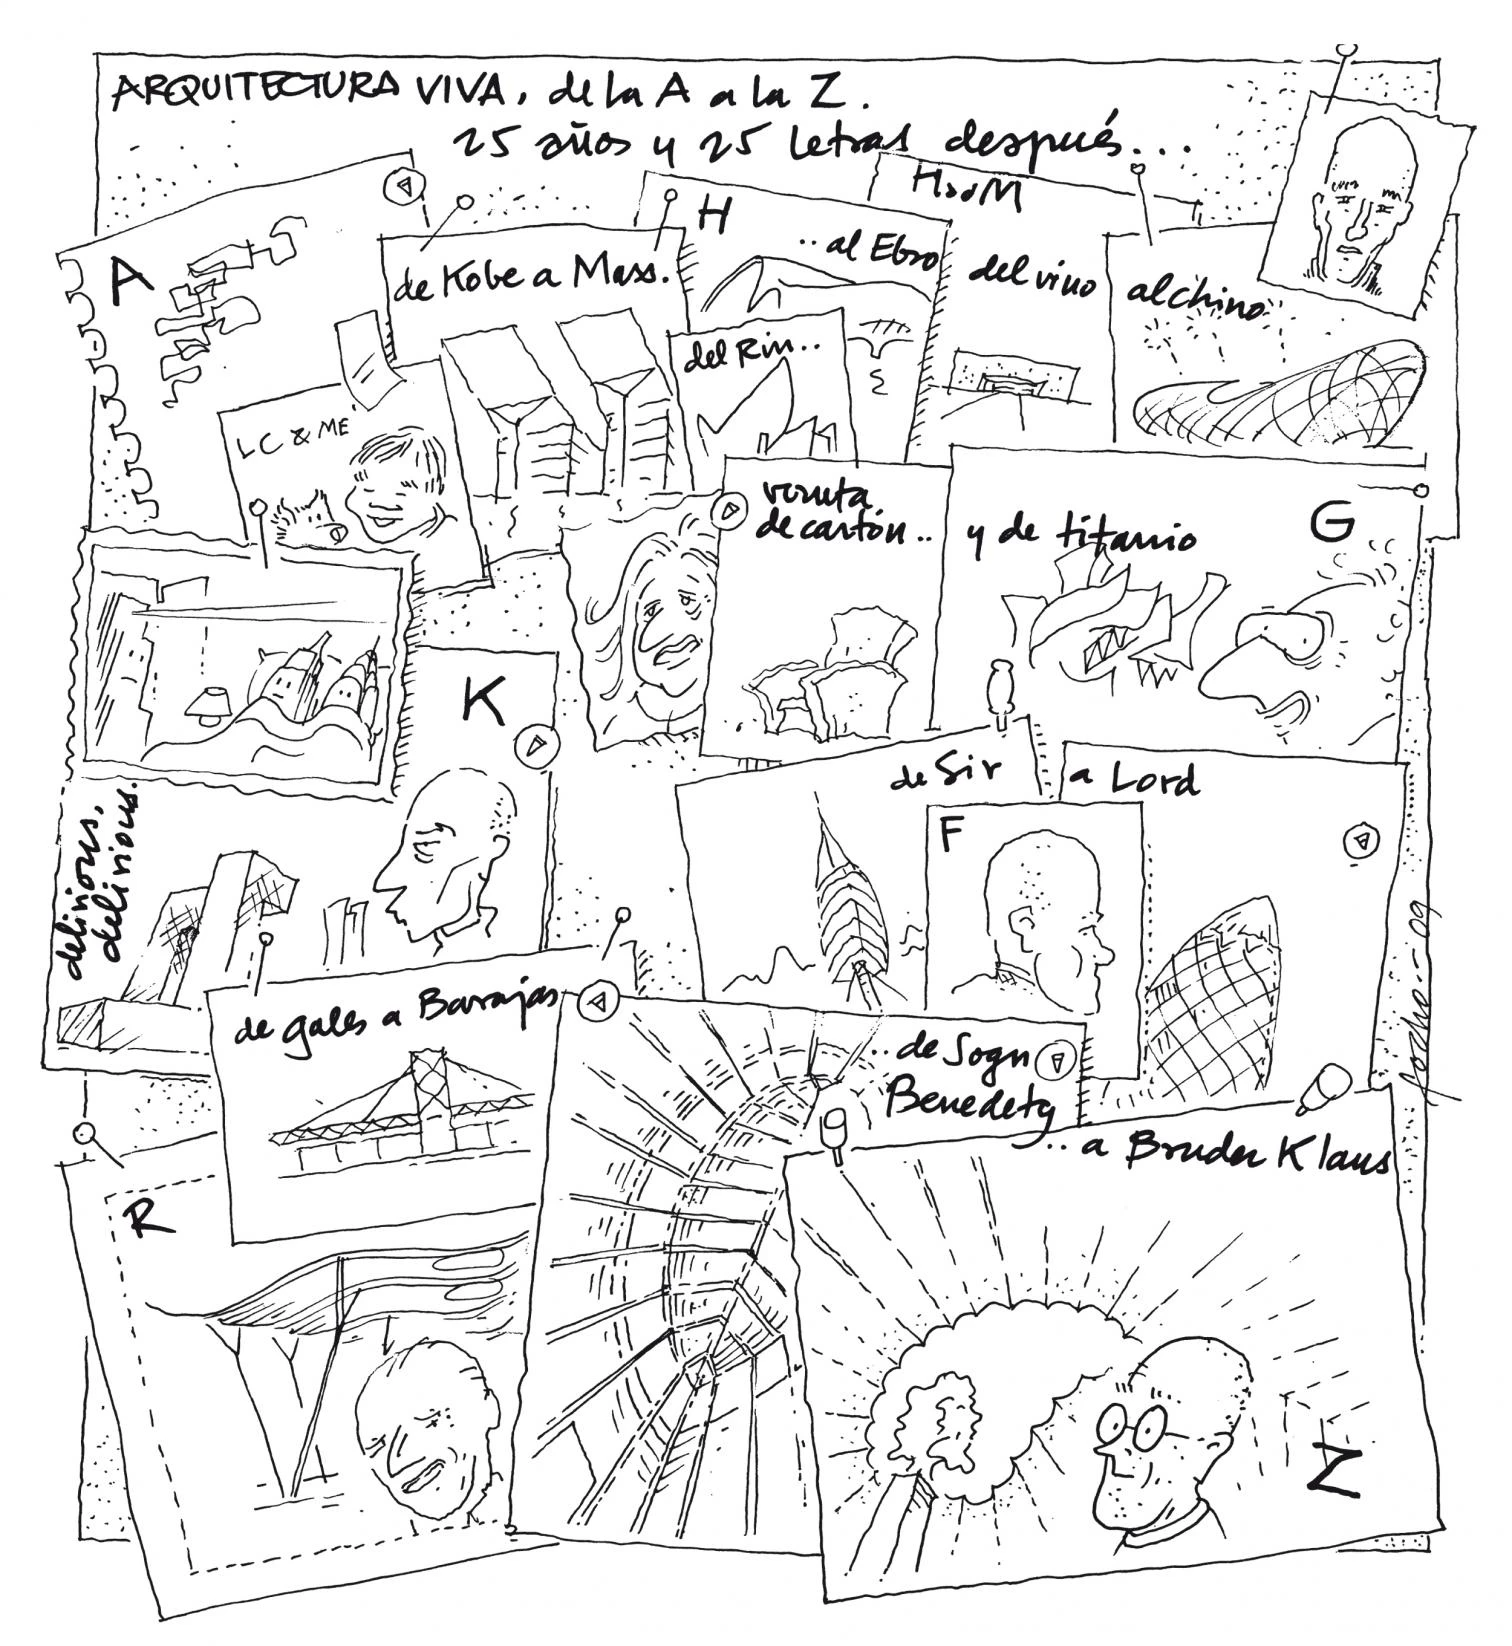 ARQUITECTURA VIVA, de la A a la Z.
25 años y 25 letras después...
A
de Kobe a Mass.
LC & ME
H
..al Ebro
del Rin..
H&deM
del vino
al chino
viruta
de cartón..
y de titanio
G
K
delirious,
delirious.
de Sir
a Lord
F
de Gales a Barajas
R
..de Sogn
Benedetg
..a Bruder Klaus
Z